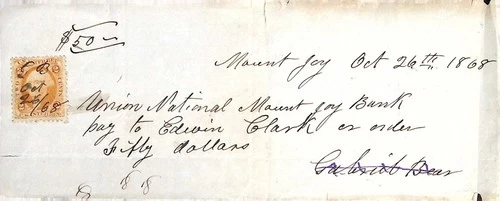 $50—
Mount Joy Oct 26th 1868
B
Oct
26/
1868
Union National Mount Joy Bank
pay to Edwin Clark or order
Fifty dollars
Gabriel Bear